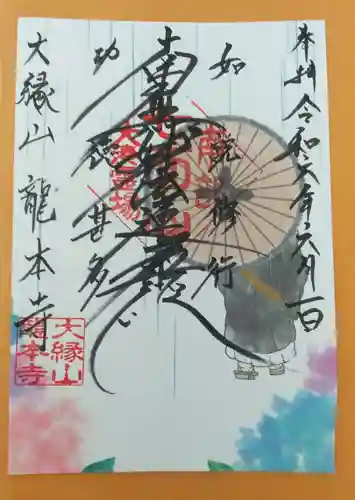 奉拝 令和六年六月一日
如説修行
南無妙法蓮華経
功徳甚多
大縁山 龍本寺
大縁山
龍本寺